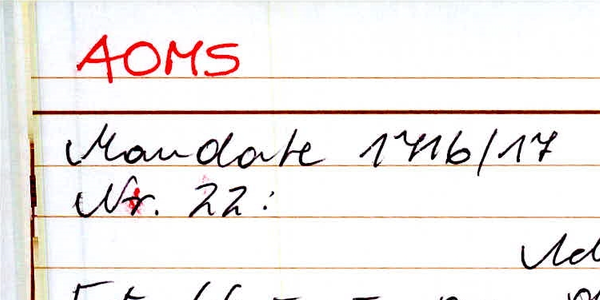 AOMS
Mandate 1716/17
Nr. 22: